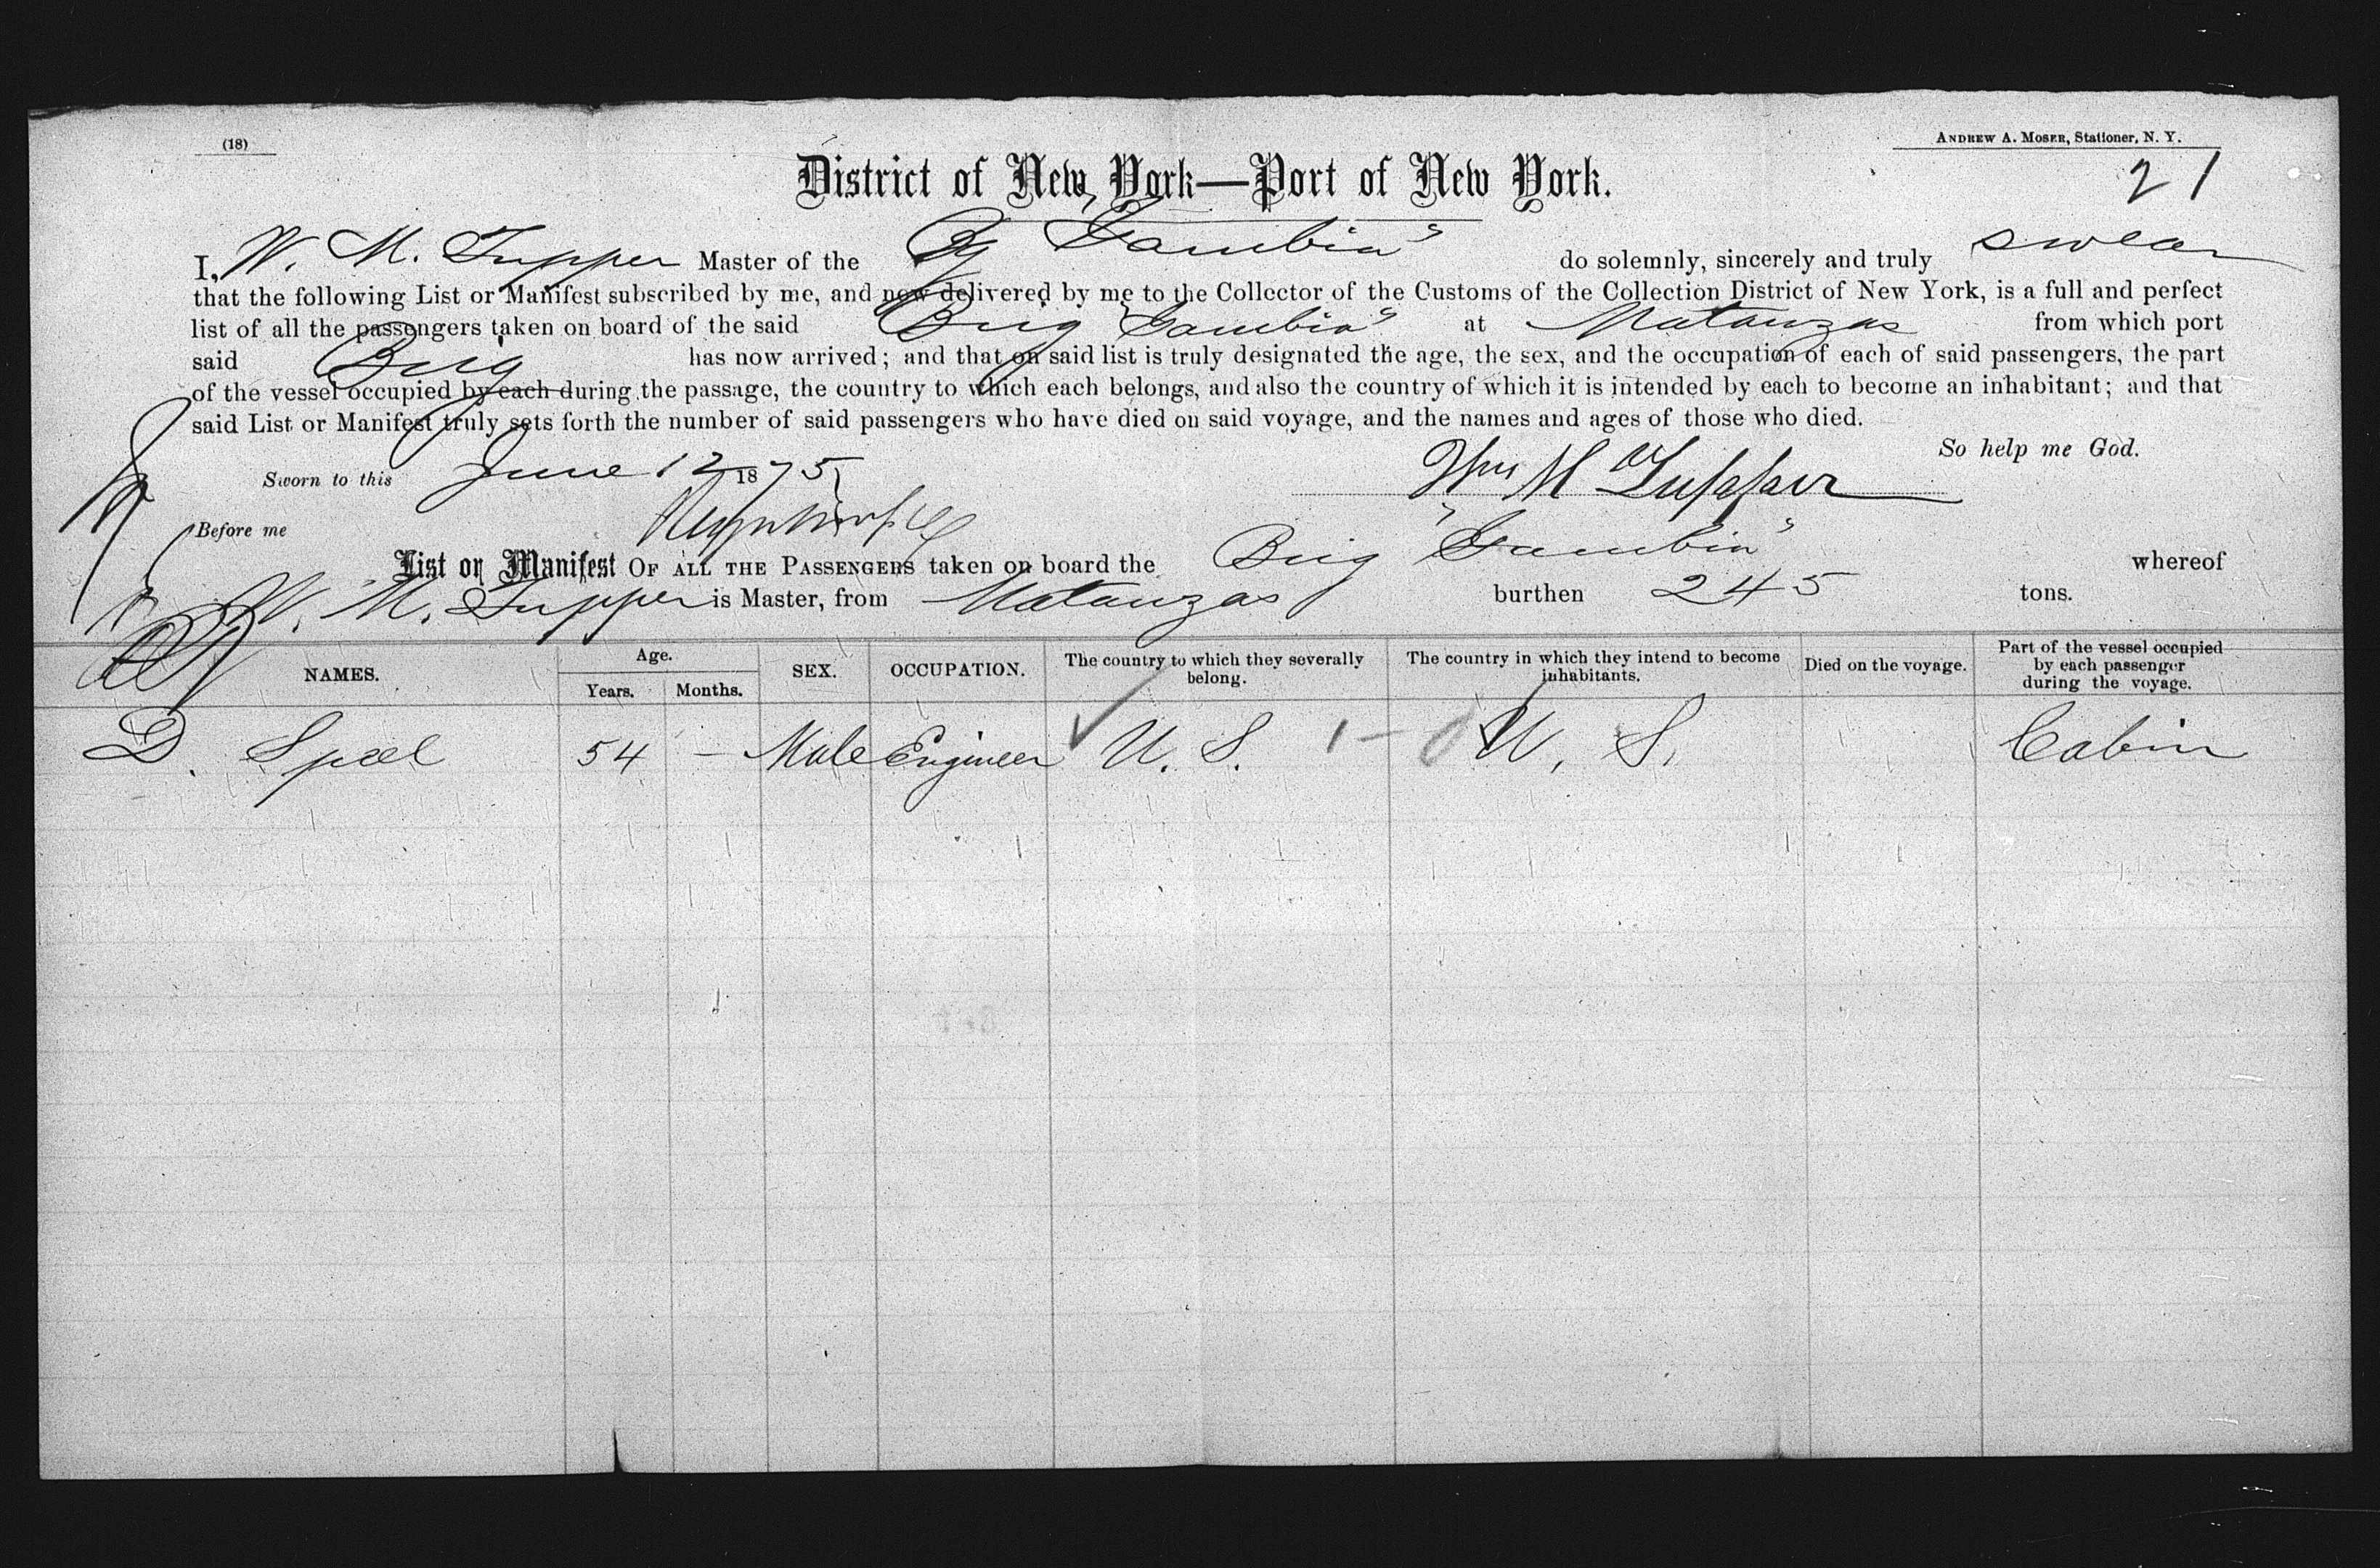 (18)
ANDREW A. MOSER, Stationer, N. Y.
21
District of New York—Port of New York.
I, W. M. Tupper Master of the Bg "Gambia" do solemnly, sincerely and truly swear
that the following List or Manifest subscribed by me, and now delivered by me to the Collector of the Customs of the Collection District of New York, is a full and perfect
list of all the passengers taken on board of the said Brig "Gambia" at Matanzas from which port
said Brig has now arrived; and that on said list is truly designated the age, the sex, and the occupation of each of said passengers, the part
of the vessel occupied by each during the passage, the country to which each belongs, and also the country of which it is intended by each to become an inhabitant; and that
said List or Manifest truly sets forth the number of said passengers who have died on said voyage, and the names and ages of those who died.
So help me God.
Sworn to this June 12 1875
Wm M Tupper
Before me
List or Manifest OF ALL THE PASSENGERS taken on board the Brig "Gambia" whereof
W. M. Tupper is Master, from Matanzas burthen 245 tons.
NAMES. Age. Years. Months. SEX. OCCUPATION. The country to which they severally belong. The country in which they intend to become inhabitants. Died on the voyage. Part of the vessel occupied by each passenger during the voyage.
D. Speel 54 – Male Engineer U. S. 1 – U. S. Cabin